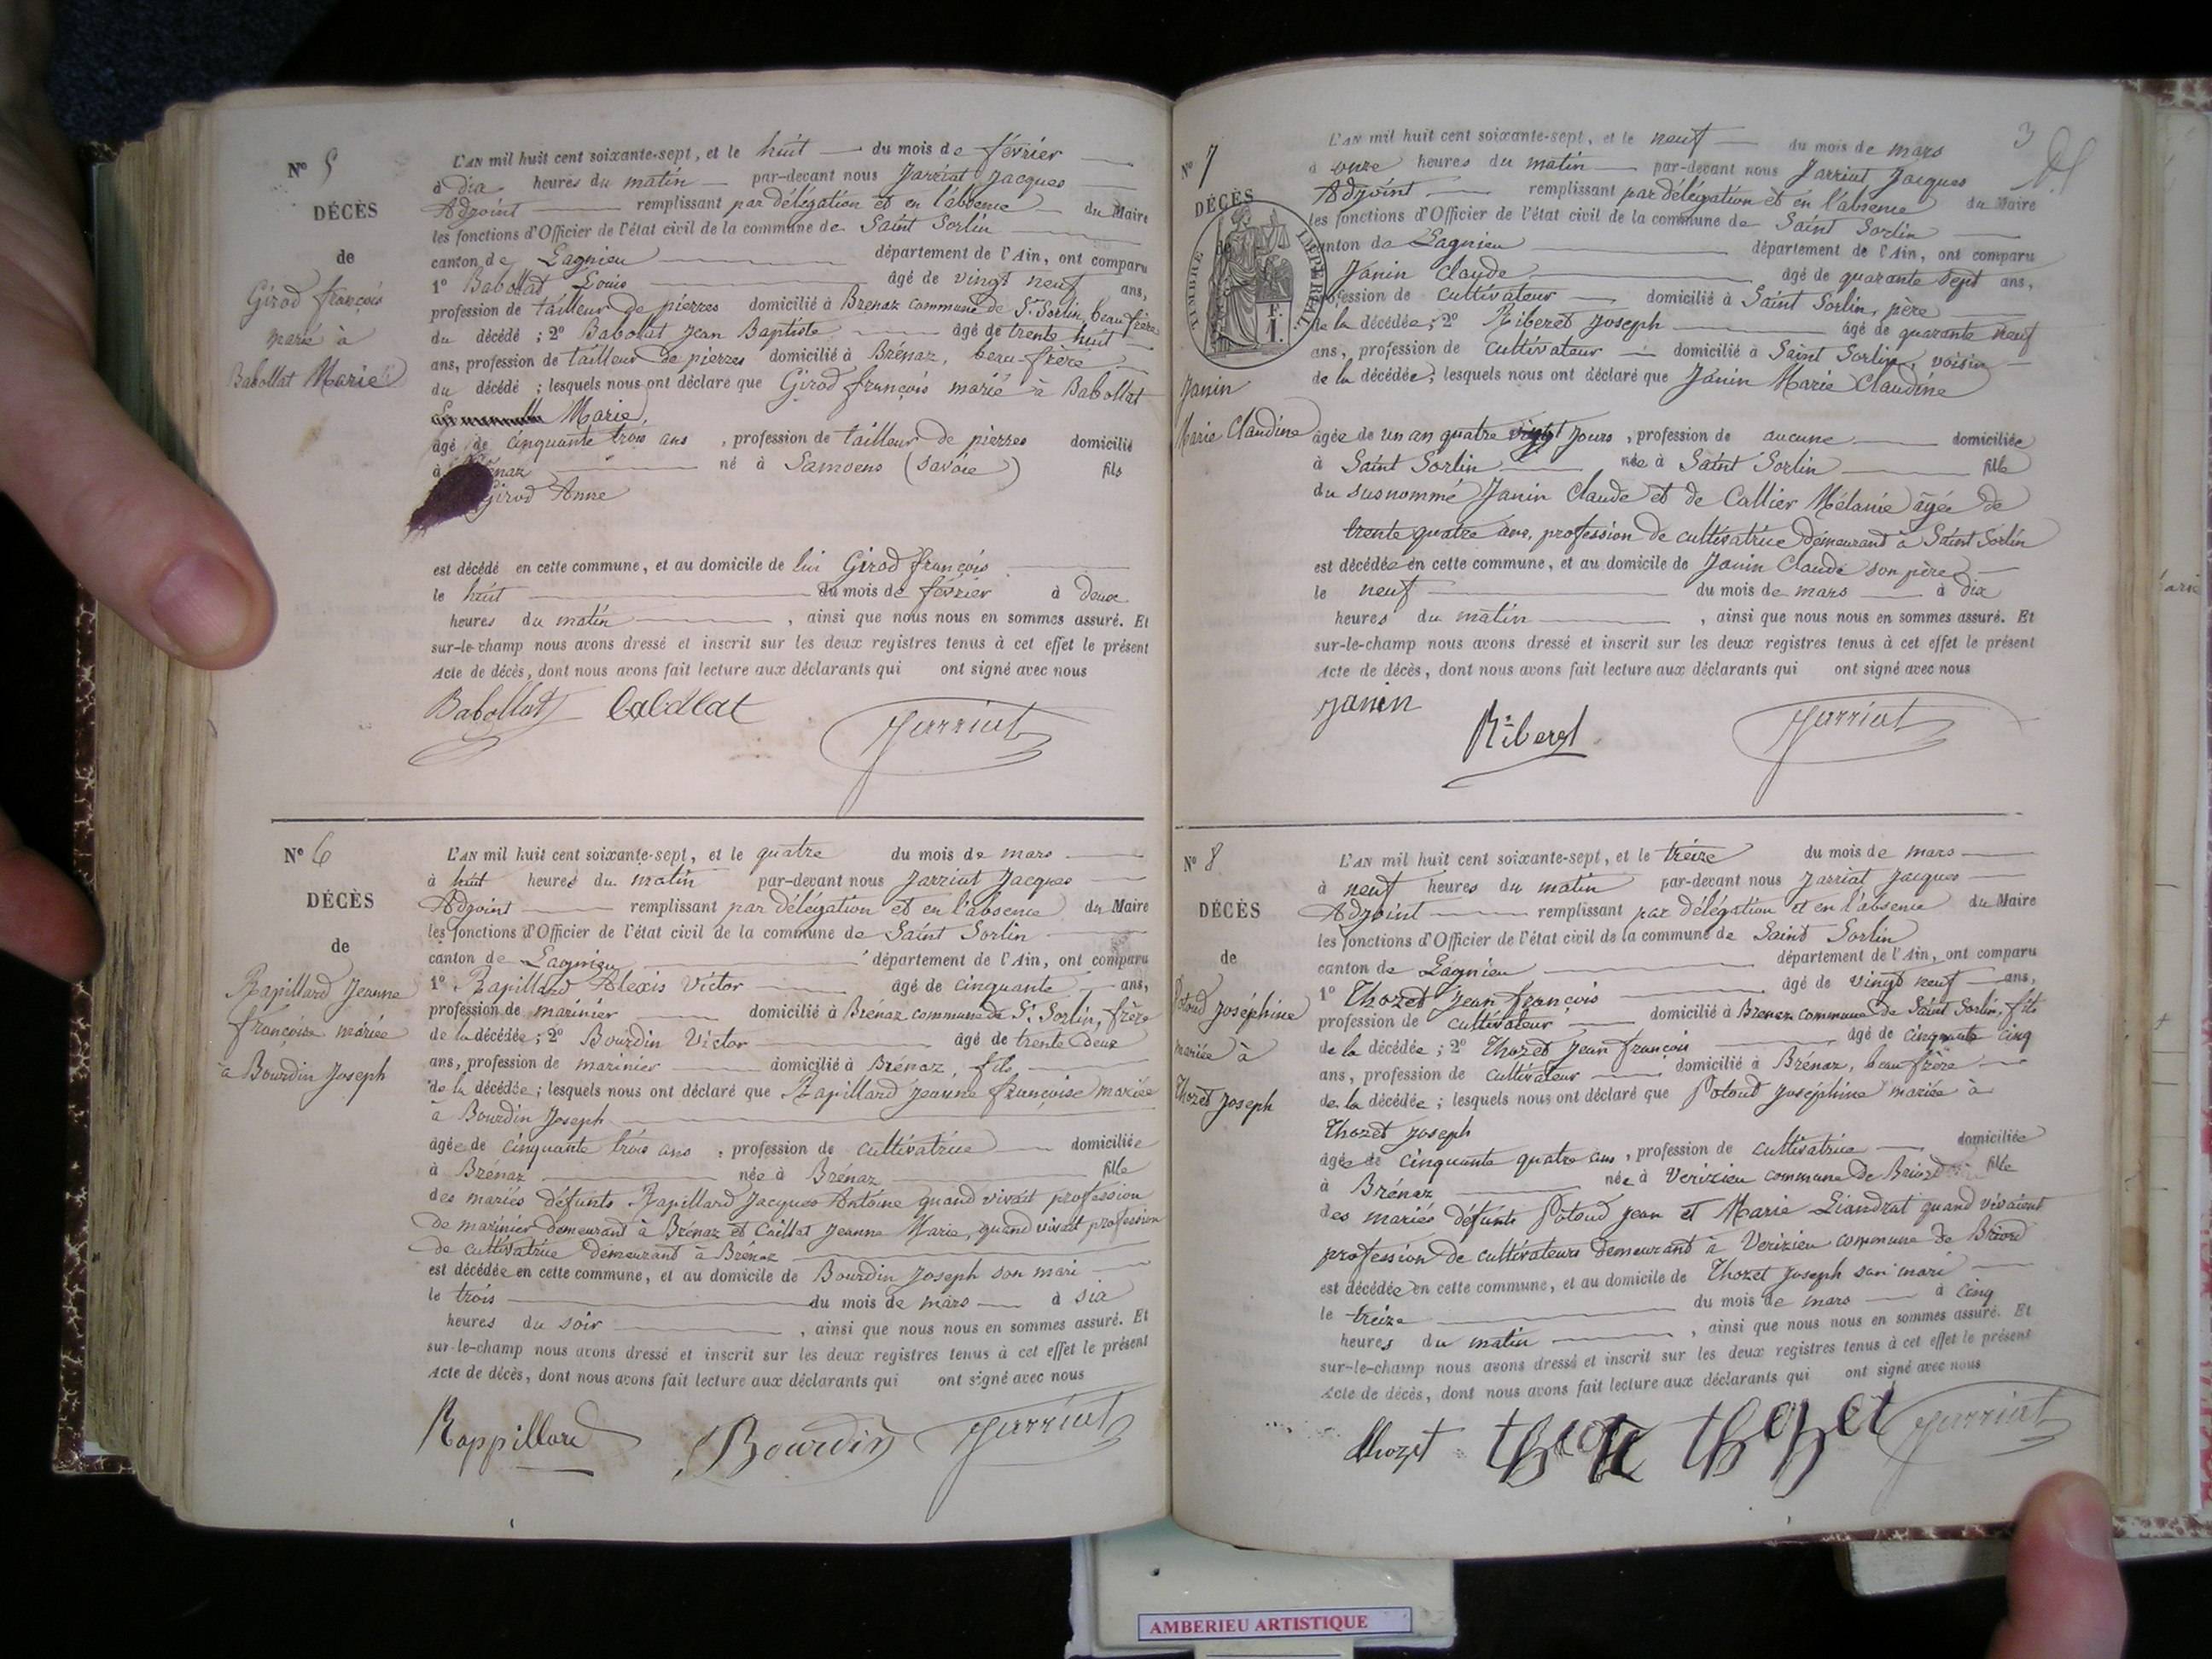 N° 5
DÉCÈS
de
Girod françois
marié à
Babollat Marie
L'AN mil huit cent soixante-sept, et le huit du mois de février
à dix heures du matin par-devant nous Jarriat Jacques
Adjoint remplissant par délégation et en l'absence du Maire
les fonctions d'Officier de l'état civil de la commune de Saint Sorlin
canton de Lagnieu département de l'Ain, ont comparu
1° Babollat Louis âgé de vingt neuf ans,
profession de tailleur de pierres domicilié à Brénaz commune de St Sorlin, beau frère
du décédé ; 2° Babollat Jean Baptiste âgé de trente huit
ans, profession de tailleur de pierres domicilié à Brénaz, beau-frère
du décédé ; lesquels nous ont déclaré que Girod françois marié à Babollat
Marie,
âgé de cinquante trois ans, profession de tailleur de pierres domicilié
à né à Samoens (Savoie) fils
Girod Anne
est décédé en cette commune, et au domicile de lui Girod françois
le huit du mois de février à deux
heures du matin, ainsi que nous nous en sommes assuré. Et
sur-le-champ nous avons dressé et inscrit sur les deux registres tenus à cet effet le présent
Acte de décès, dont nous avons fait lecture aux déclarants qui ont signé avec nous
Babollat babollat Jarriat
N° 6
DÉCÈS
de
Rapillard Jeanne
françoise mariée
à Bourdin Joseph
L'AN mil huit cent soixante-sept, et le quatre du mois de mars
à huit heures du matin par-devant nous Jarriat Jacques
Adjoint remplissant par délégation et en l'absence du Maire
les fonctions d'Officier de l'état civil de la commune de Saint Sorlin
canton de Lagnieu département de l'Ain, ont comparu
1° Rapillard Alexis Victor âgé de cinquante ans,
profession de marinier domicilié à Brénaz commune de St Sorlin, frère
de la décédée ; 2° Bourdin Victor âgé de trente deux
ans, profession de marinier domicilié à Brénaz, fils
de la décédée ; lesquels nous ont déclaré que Rapillard Jeanne françoise mariée
à Bourdin Joseph
âgée de cinquante trois ans, profession de cultivatrice domiciliée
à Brénaz née à Brénaz fille
des mariés défunts Rapillard Jacques Antoine quand vivait profession
de marinier demeurant à Brénaz et Caillat Jeanne Marie, quand vivait profession
de cultivatrice demeurant à Brénaz
est décédée en cette commune, et au domicile de Bourdin Joseph son mari
le trois du mois de mars à six
heures du soir, ainsi que nous nous en sommes assuré. Et
sur-le-champ nous avons dressé et inscrit sur les deux registres tenus à cet effet le présent
Acte de décès, dont nous avons fait lecture aux déclarants qui ont signé avec nous
Rappillard Bourdin Jarriat
3
N° 7
DÉCÈS
de
TIMBRE IMPÉRIAL
F.
1.
Janin
Marie Claudine
L'AN mil huit cent soixante-sept, et le neuf du mois de mars
à onze heures du matin par-devant nous Jarriat Jacques
Adjoint remplissant par délégation et en l'absence du Maire
les fonctions d'Officier de l'état civil de la commune de Saint Sorlin
canton de Lagnieu département de l'Ain, ont comparu
Janin Claude âgé de quarante sept ans,
profession de cultivateur domicilié à Saint Sorlin, père
de la décédée ; 2° Riberet Joseph âgé de quarante neuf
ans, profession de cultivateur domicilié à Saint Sorlin, voisin
de la décédée ; lesquels nous ont déclaré que Janin Marie Claudine
âgée de un an quatre vingt jours, profession de aucune domiciliée
à Saint Sorlin née à Saint Sorlin fille
du susnommé Janin Claude et de Callier Mélanie âgée de
trente quatre ans, profession de cultivatrice demeurant à Saint Sorlin
est décédée en cette commune, et au domicile de Janin Claude son père
le neuf du mois de mars à dix
heures du matin, ainsi que nous nous en sommes assuré. Et
sur-le-champ nous avons dressé et inscrit sur les deux registres tenus à cet effet le présent
Acte de décès, dont nous avons fait lecture aux déclarants qui ont signé avec nous
Janin Riberet Jarriat
N° 8
DÉCÈS
de
Potoud Joséphine
mariée à
Thozet Joseph
L'AN mil huit cent soixante-sept, et le treize du mois de mars
à neuf heures du matin par-devant nous Jarriat Jacques
Adjoint remplissant par délégation et en l'absence du Maire
les fonctions d'Officier de l'état civil de la commune de Saint Sorlin
canton de Lagnieu département de l'Ain, ont comparu
1° Thozet Jean françois âgé de vingt neuf ans,
profession de cultivateur domicilié à Brenaz commune de Saint Sorlin, fils
de la décédée ; 2° Thozet Jean françois âgé de cinquante cinq
ans, profession de cultivateur domicilié à Brénaz, beau frère
de la décédée ; lesquels nous ont déclaré que Potoud Joséphine mariée à
Thozet Joseph
âgée de cinquante quatre ans, profession de cultivatrice domiciliée
à Brénaz née à Verizieu commune de Briord fille
des mariés défunts Potoud Jean et Marie Liandrat quand vivaient
profession de cultivateurs demeurant à Verizieu commune de Briord
est décédée en cette commune, et au domicile de Thozet Joseph son mari
le treize du mois de mars à cinq
heures du matin, ainsi que nous nous en sommes assuré. Et
sur-le-champ nous avons dressé et inscrit sur les deux registres tenus à cet effet le présent
Acte de décès, dont nous avons fait lecture aux déclarants qui ont signé avec nous
thozet thozet Jarriat
AMBERIEU ARTISTIQUE